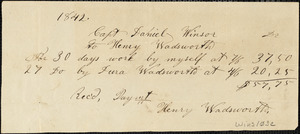 1842.
Capt Daniel Winsor Dr
To Henry Wadsworth
For 30 days work by myself at 7/6 37,50
27 Do by Zera Wadsworth at 4/6 20,25
$57,75
Recd, Payt
Henry Wadsworth